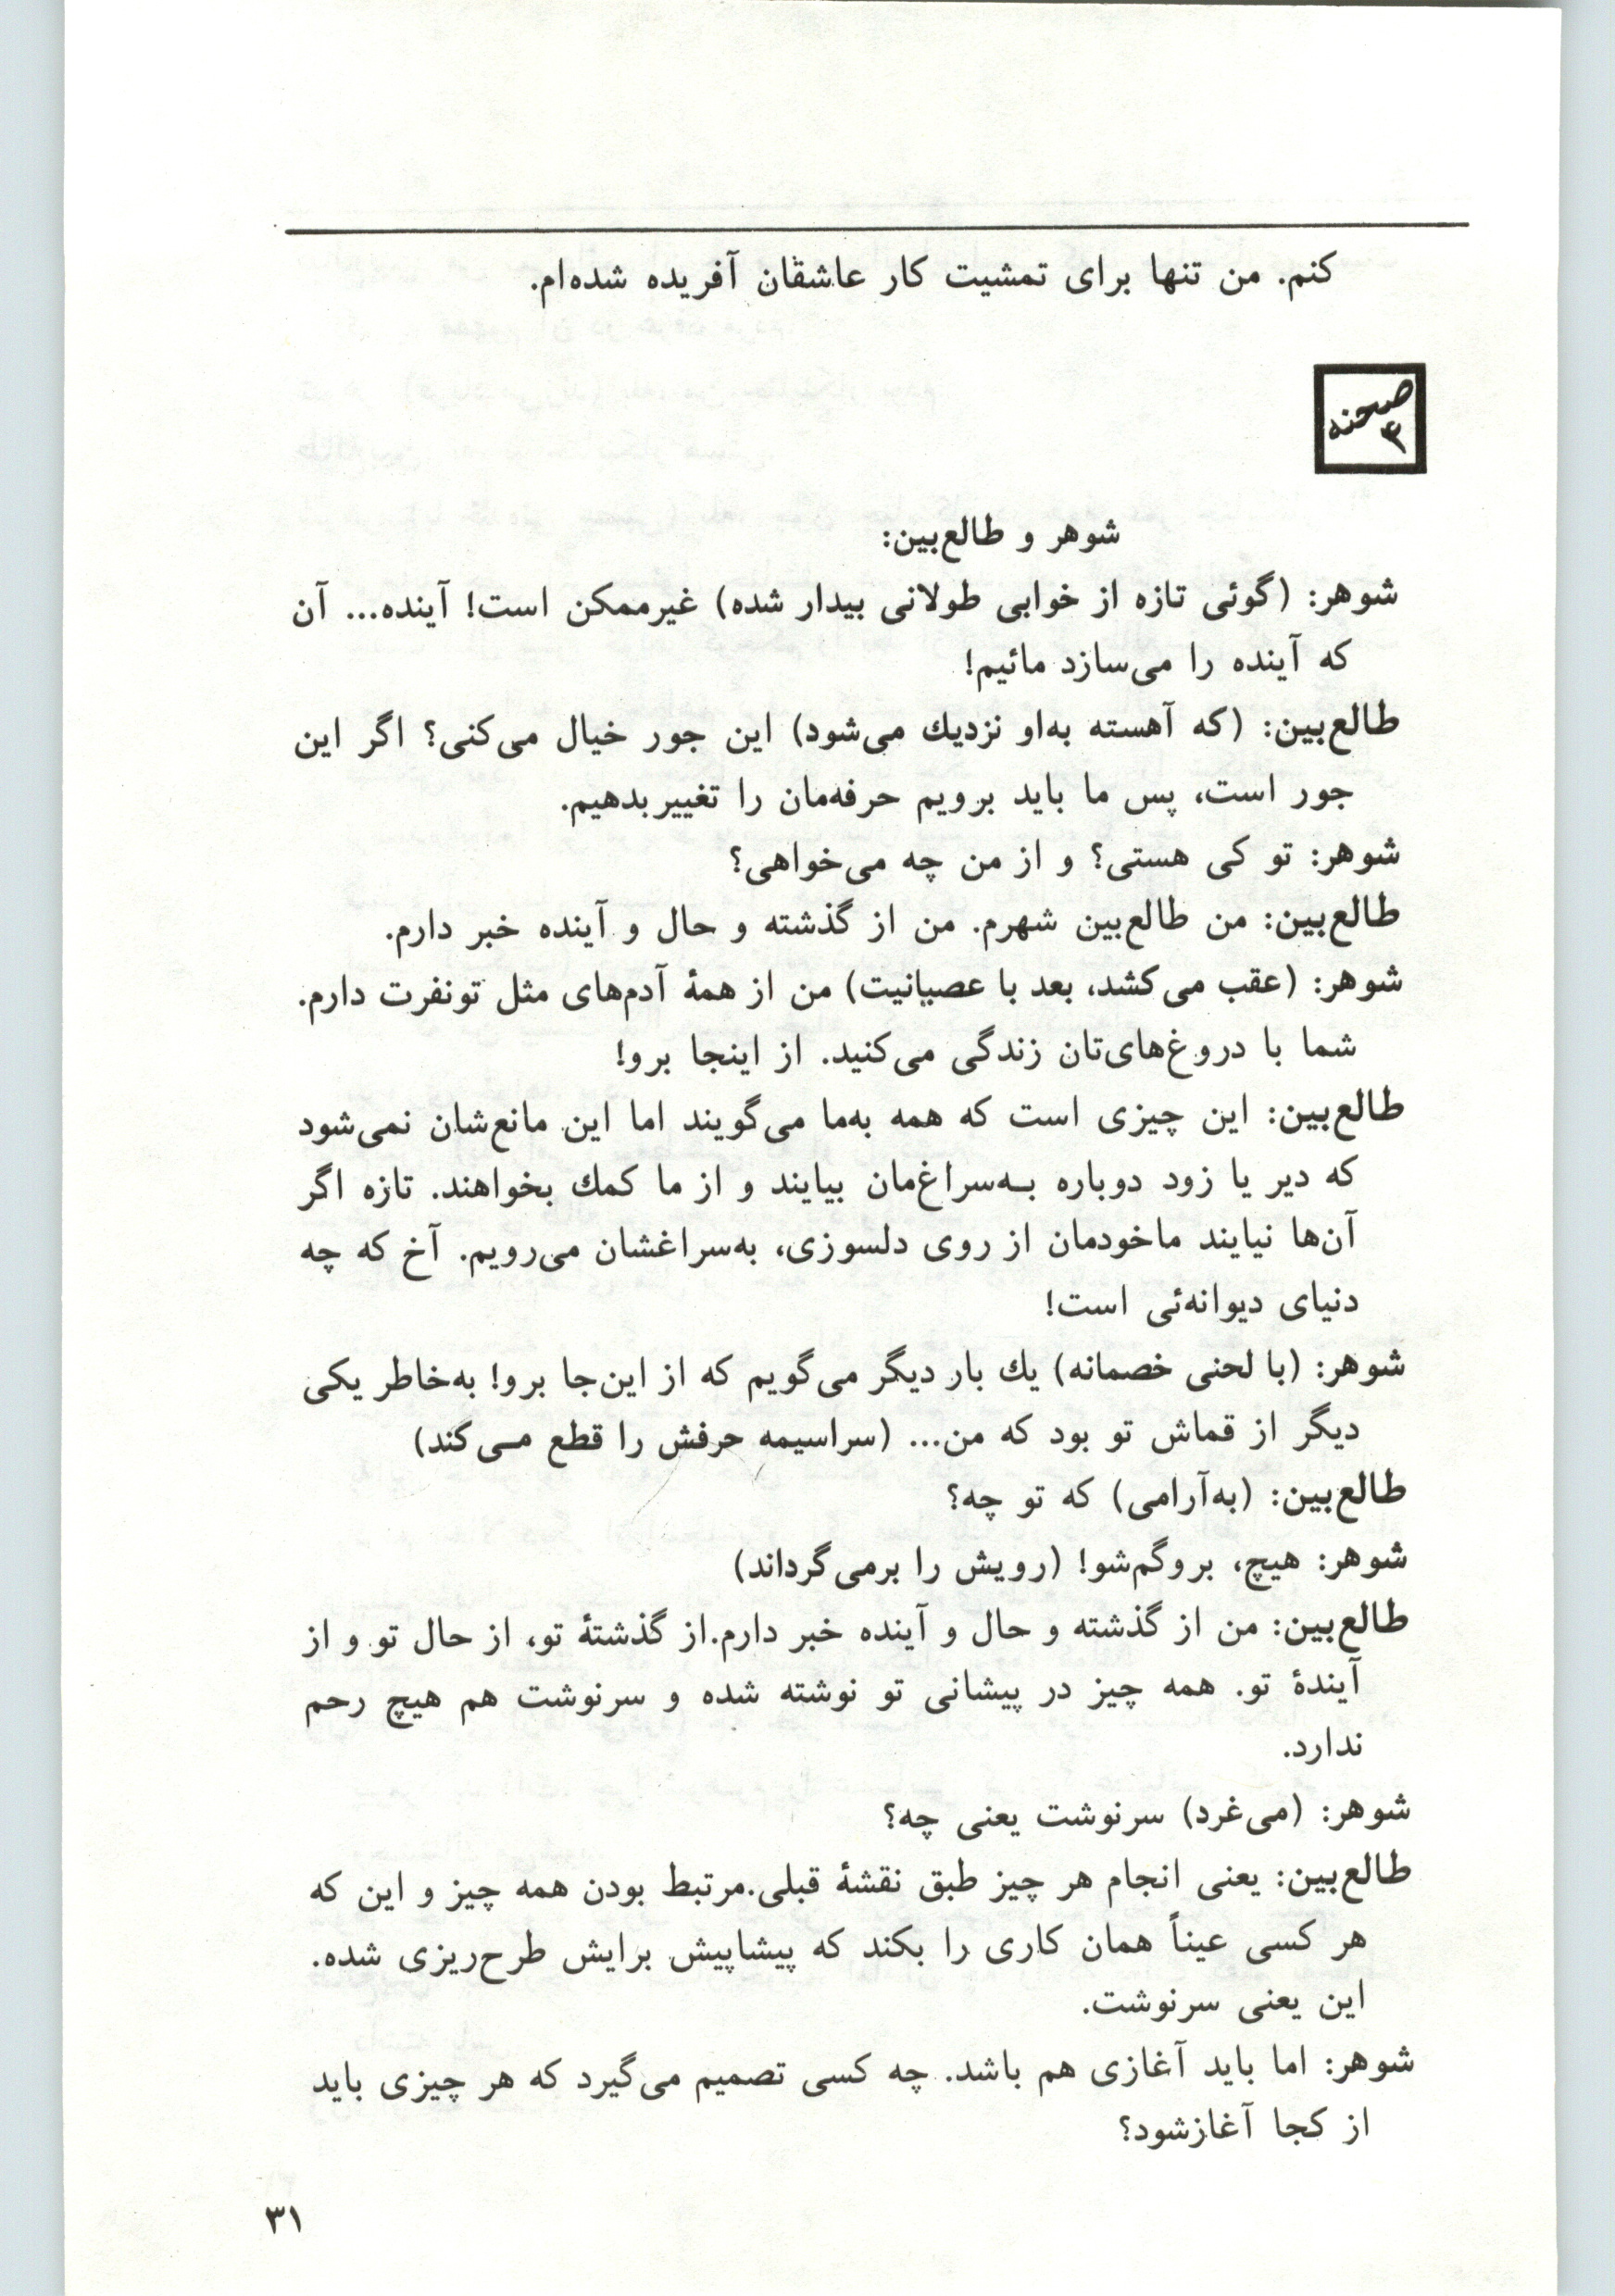 کنم. من تنها برای تمشیت کار عاشقان آفریده شده‌ام.
صحنه
۴
شوهر و طالع‌بین:
شوهر: (گوئی تازه از خوابی طولانی بیدار شده) غیرممکن است! آینده... آن
که آینده را می‌سازد مائیم!
طالع‌بین: (که آهسته به‌او نزدیك می‌شود) این جور خیال می‌کنی؟ اگر این
جور است، پس ما باید برویم حرفه‌مان را تغییربدهیم.
شوهر: تو کی هستی؟ و از من چه می‌خواهی؟
طالع‌بین: من طالع‌بین شهرم. من از گذشته و حال و آینده خبر دارم.
شوهر: (عقب می‌کشد، بعد با عصبانیت) من از همهٔ آدم‌های مثل تونفرت دارم.
شما با دروغ‌های‌تان زندگی می‌کنید. از اینجا برو!
طالع‌بین: این چیزی است که همه به‌ما می‌گویند اما این مانع‌شان نمی‌شود
که دیر یا زود دوباره بـه‌سراغ‌مان بیایند و از ما کمك بخواهند. تازه اگر
آن‌ها نیایند ماخودمان از روی دلسوزی، به‌سراغشان می‌رویم. آخ که چه
دنیای دیوانه‌ئی است!
شوهر: (با لحنی خصمانه) یك بار دیگر می‌گویم که از این‌جا برو! به‌خاطر یکی
دیگر از قماش تو بود که من... (سراسیمه حرفش را قطع مـی‌کند)
طالع‌بین: (به‌آرامی) که تو چه؟
شوهر: هیچ، بروگم‌شو! (رویش را برمی‌گرداند)
طالع‌بین: من از گذشته و حال و آینده خبر دارم.از گذشتهٔ تو، از حال تو و از
آیندهٔ تو. همه چیز در پیشانی تو نوشته شده و سرنوشت هم هیچ رحم
ندارد.
شوهر: (می‌غرد) سرنوشت یعنی چه؟
طالع‌بین: یعنی انجام هر چیز طبق نقشهٔ قبلی.مرتبط بودن همه چیز و این که
هر کسی عیناً همان کاری را بکند که پیشاپیش برایش طرح‌ریزی شده.
این یعنی سرنوشت.
شوهر: اما باید آغازی هم باشد. چه کسی تصمیم می‌گیرد که هر چیزی باید
از کجا آغازشود؟
۳۱